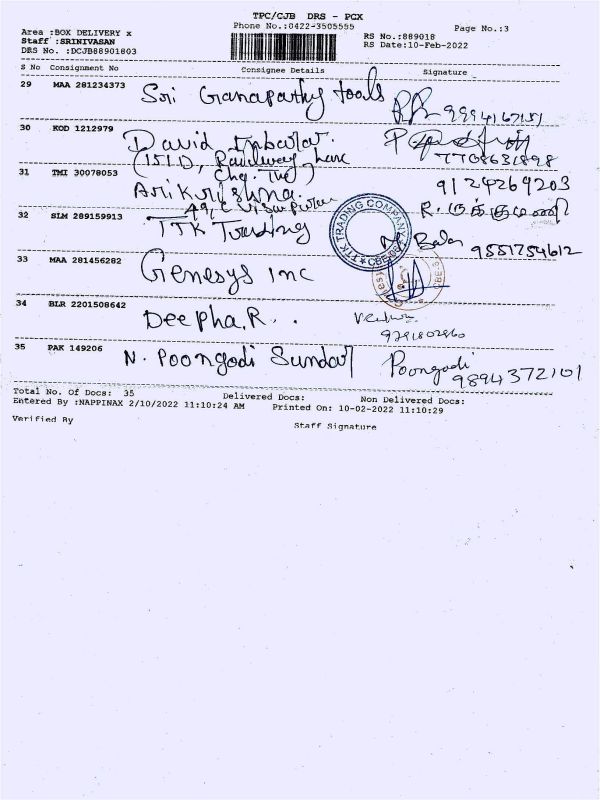 TPC/CJB DRS - PCX
Phone No.:0422-3505555
Page No.:3
Area :BOX DELIVERY x
Staff :SRINIVASAN
DRS No. :DCJB88901803
RS No.:889018
RS Date:10-Feb-2022
S No Consignment No Consignee Details Signature
29 MAA 281234373 Sri Ganapathy tools
30 KOD 1212979 David Inbaraj.
7708631898
31 TMI 30078053 Arikrishna.
9124269203
R. ருக்குமணி
32 SLM 289159913 TTK Trading
TTK TRADING COMPANY
Bala 9551754612
33 MAA 281456282 Genesys inc
34 BLR 2201508642 Deepha.R..
35 PAK 149206 N. Poongodi Sundar Poongodi
9894372101
Total No. Of Docs: 35 Delivered Docs: Non Delivered Docs:
Entered By :NAPPINAX 2/10/2022 11:10:24 AM Printed On: 10-02-2022 11:10:29
Verified By Staff Signature